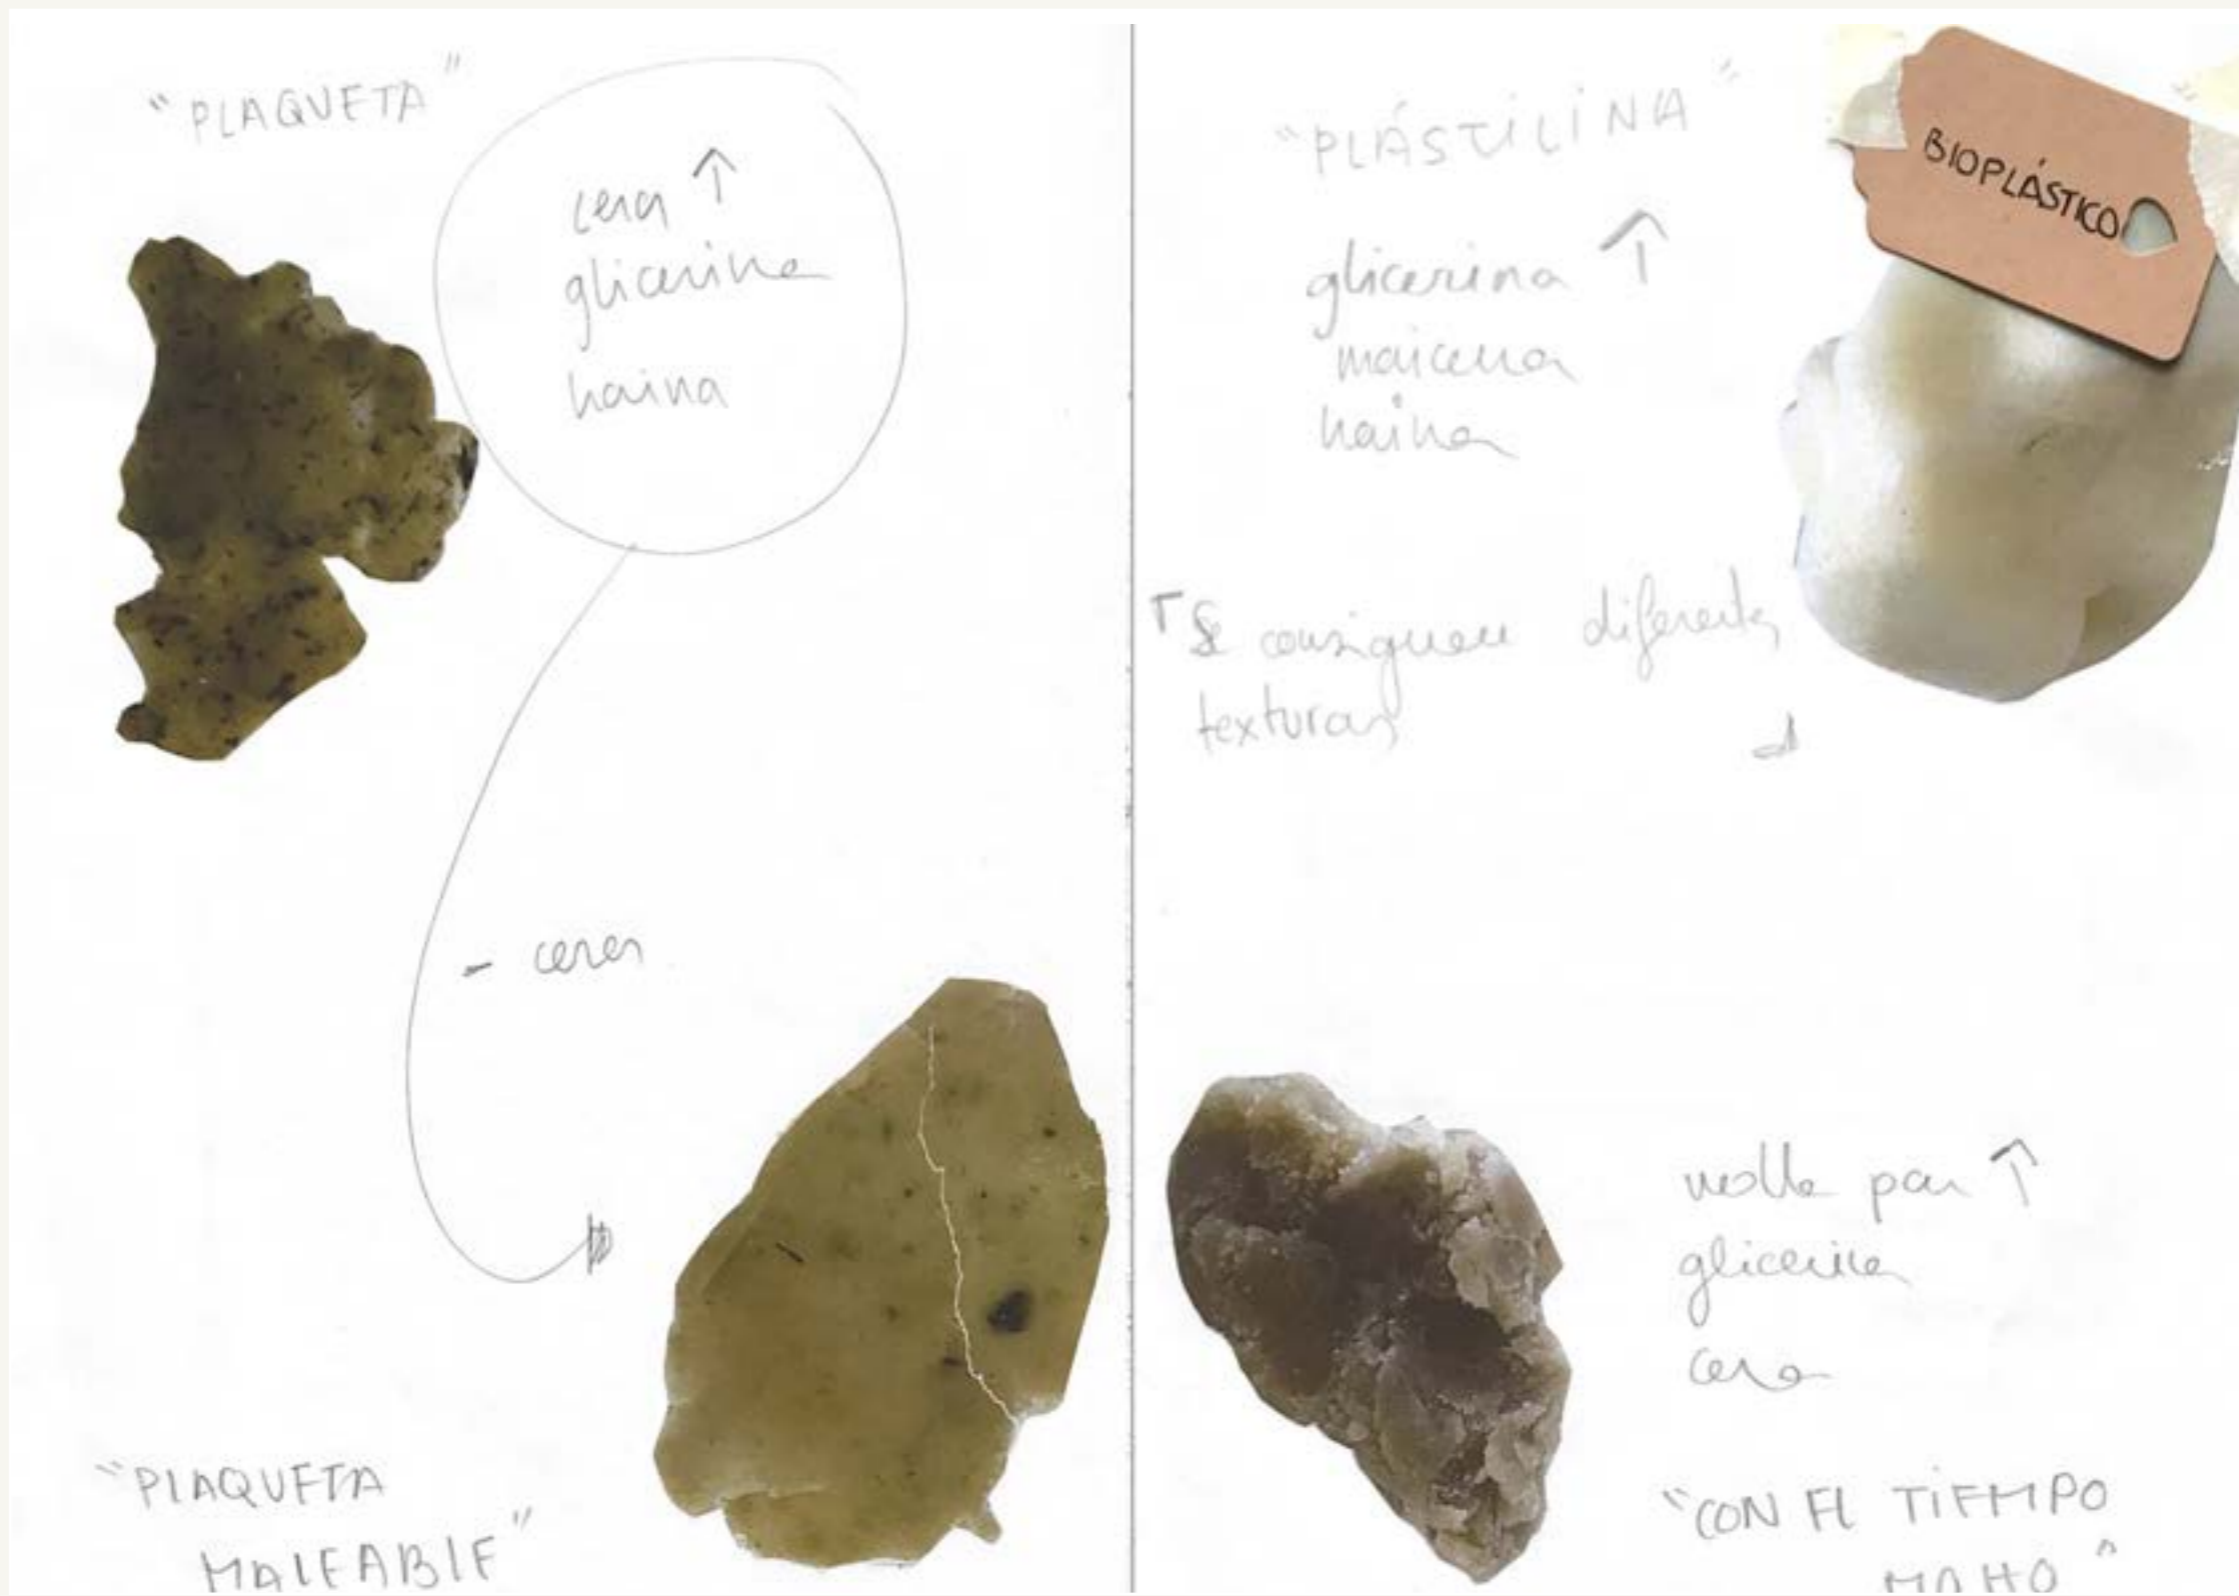 "PLAQUETA"
cera ↑
glicerina
haina
- cera
"PLAQUETA
MALEABLE"
"PLÁSTILINA"
BIOPLÁSTICO
glicerina ↑
maicena
haina
Se consiguen diferentes
texturas
molla pan ↑
glicerina
cera
"CON EL TIEMPO
MOHO"